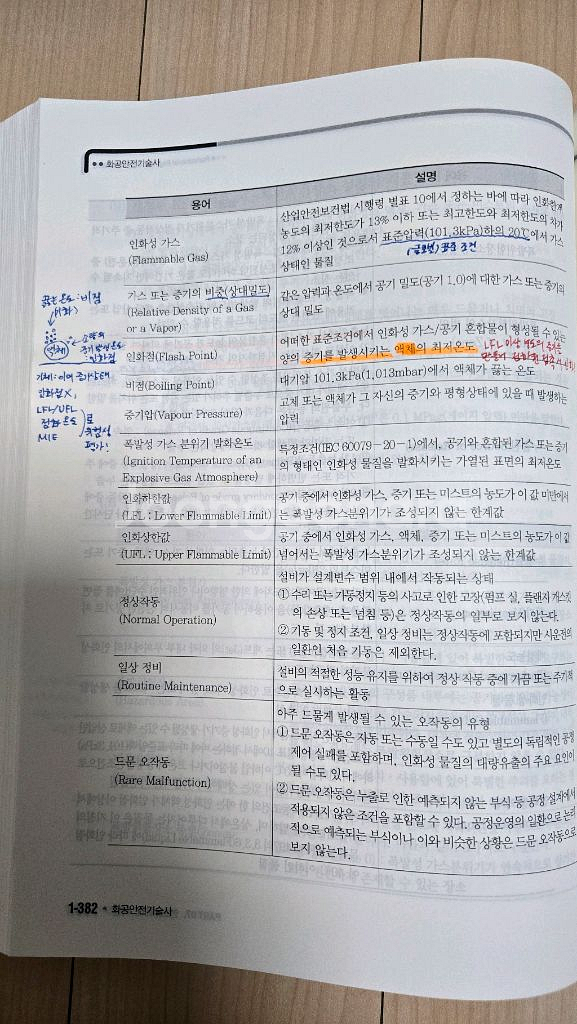 •• 화공안전기술사
용어
설명
인화성 가스
(Flammable Gas)
산업안전보건법 시행령 별표 10에서 정하는 바에 따라 인화한계
농도의 최저한도가 13% 이하 또는 최고한도와 최저한도의 차가
12% 이상인 것으로서 표준압력(101.3kPa)하의 20℃에서 가스
상태인 물질
(글로벌) 표준 조건
가스 또는 증기의 비중(상대밀도)
(Relative Density of a Gas
or a Vapor)
같은 압력과 온도에서 공기 밀도(공기 1.0)에 대한 가스 또는 증기의
상대 밀도
끓는 온도 : 비점
액체
소량의
증기발생온도
: 인화점
인화점(Flash Point)
어떠한 표준조건에서 인화성 가스/공기 혼합물이 형성될 수 있는
양의 증기를 발생시키는 액체의 최저온도
LFL 이상
기체 : 이미 증기상태
인화점 X,
LFL/UFL
점화온도
MIE
로
위험성
평가!
비점(Boiling Point)
대기압 101.3kPa(1,013mbar)에서 액체가 끓는 온도
증기압(Vapour Pressure)
고체 또는 액체가 그 자신의 증기와 평형상태에 있을 때 발생하는
압력
폭발성 가스 분위기 발화온도
(Ignition Temperature of an
Explosive Gas Atmosphere)
특정조건(IEC 60079-20-1)에서, 공기와 혼합된 가스 또는 증기
의 형태인 인화성 물질을 발화시키는 가열된 표면의 최저온도
인화하한값
(LFL : Lower Flammable Limit)
공기 중에서 인화성 가스, 증기 또는 미스트의 농도가 이 값 미만에서
는 폭발성 가스분위기가 조성되지 않는 한계값
인화상한값
(UFL : Upper Flammable Limit)
공기 중에서 인화성 가스, 액체, 증기 또는 미스트의 농도가 이 값
넘어서는 폭발성 가스분위기가 조성되지 않는 한계값
정상작동
(Normal Operation)
설비가 설계변수 범위 내에서 작동되는 상태
① 수리 또는 가동정지 등의 사고로 인한 고장(펌프 실, 플랜지 개스킷
의 손상 또는 넘침 등)은 정상작동의 일부로 보지 않는다.
② 기동 및 정지 조건, 일상 정비는 정상작동에 포함되지만 시운전의
일환인 처음 기동은 제외한다.
일상 정비
(Routine Maintenance)
설비의 적절한 성능 유지를 위하여 정상 작동 중에 가끔 또는 주기적
으로 실시하는 활동
드문 오작동
(Rare Malfunction)
아주 드물게 발생될 수 있는 오작동의 유형
① 드문 오작동은 자동 또는 수동일 수도 있고 별도의 독립적인 공정
제어 실패를 포함하며, 인화성 물질의 대량유출의 주요 요인이
될 수도 있다.
② 드문 오작동은 누출로 인한 예측되지 않는 부식 등 공정 설계에서
적용되지 않은 조건을 포함할 수 있다. 공정운영의 일환으로 논리
적으로 예측되는 부식이나 이와 비슷한 상황은 드문 오작동으로
보지 않는다.
1-382 • 화공안전기술사